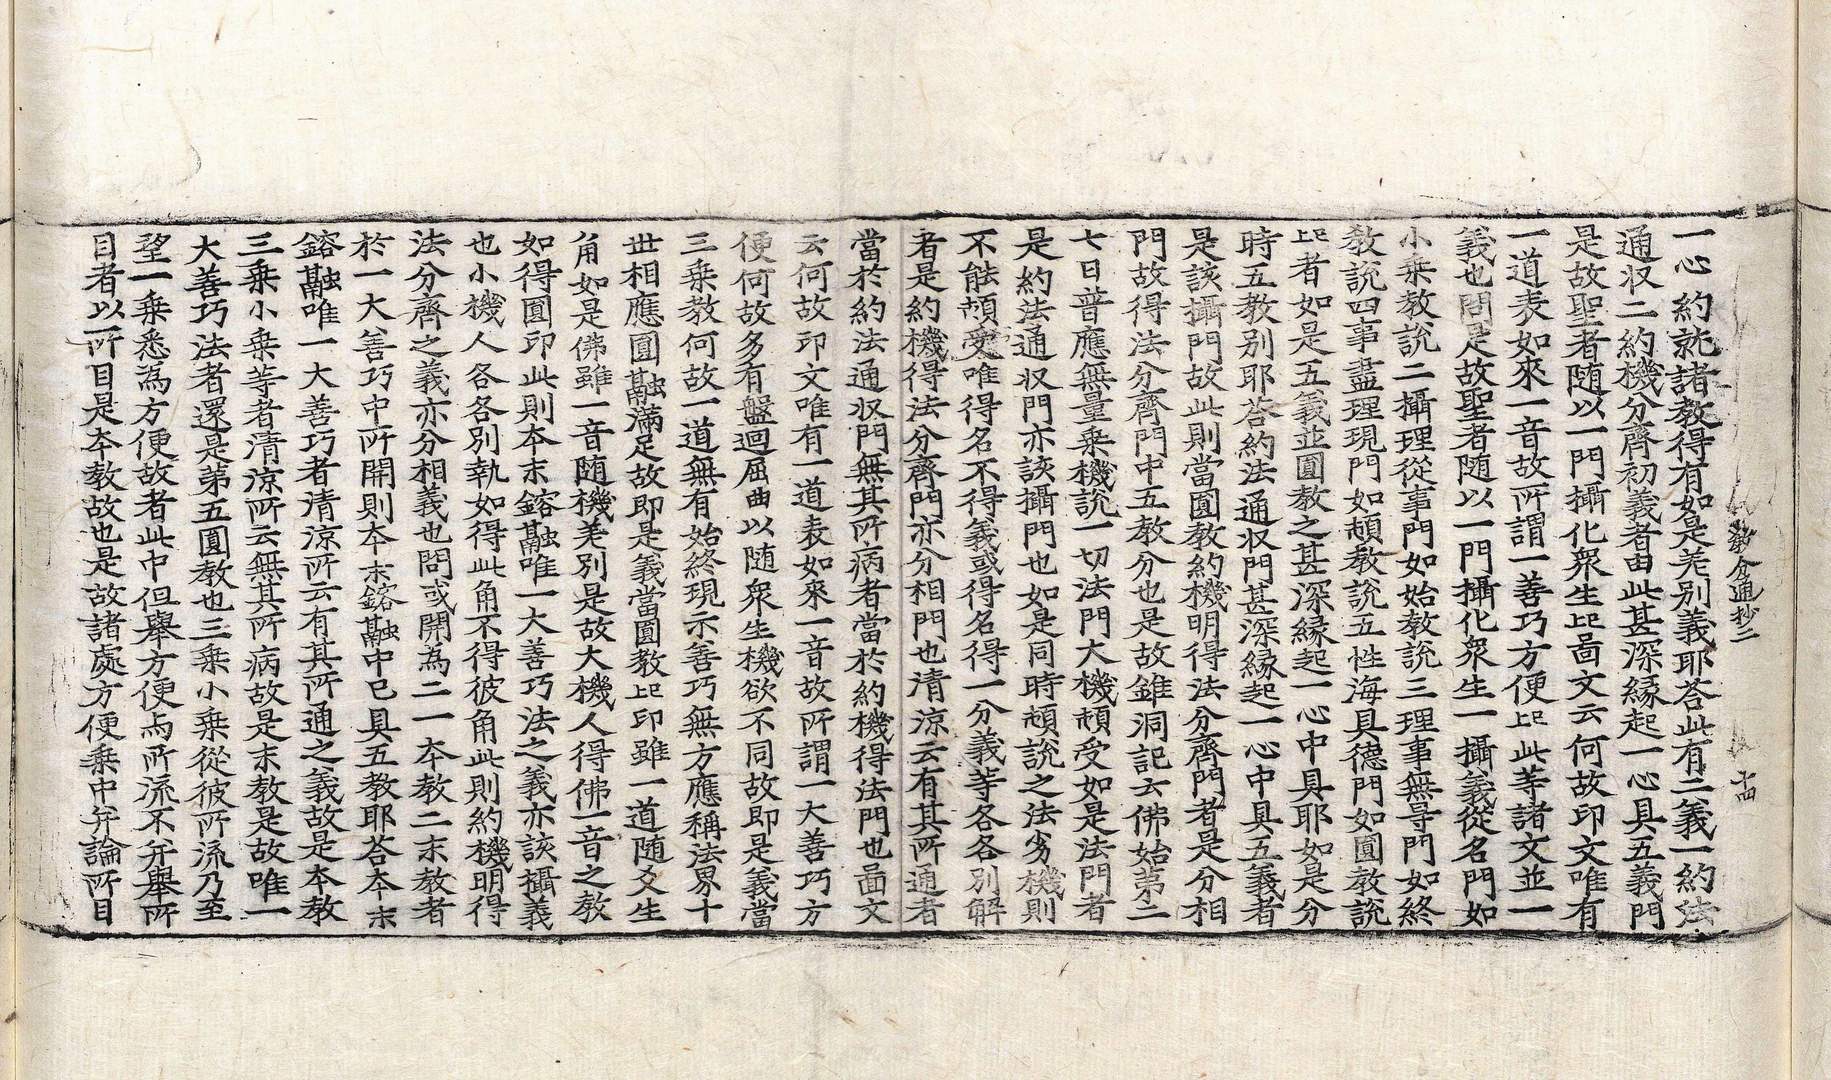 教分通抄二
十四
一心約就諸教得有如是差別義耶荅此有二義一約法
通収二約機分齊初義者由此甚深緣起一心具五義門
是故聖者随以一門攝化衆生𠯁啚文云何故印文唯有
一道表如來一音故所謂一善巧方便𠯁此等諸文並一
義也問是故聖者随以一門攝化衆生一攝義從名門如
小乗教說二攝理從事門如始教說三理事無㝵門如終
教說四事盡理現門如頓教說五性海具德門如圓教說
𠯁者如是五義並圓教之甚深緣起一心中具耶如是分
時五教別耶荅約法通収門甚深緣起一心中具五義者
是該攝門故此則當圓教約機明得法分齊門者是分相
門故得法分齊門中五教分也是故錐洞記云佛始第二
七日普應無量乗機說一切法門大機頓受如是法門者
是約法通収門亦該攝門也如是同時頓說之法劣機則
不能頓受唯得名不得義或得名得一分義等各各別解
者是約機得法分齊門亦分相門也清涼云有其所通者
當於約法通収門無其所病者當於約機得法門也啚文
云何故印文唯有一道表如來一音故所謂一大善巧方
便何故多有盤迴屈曲以随衆生機欲不同故即是義當
三乗教何故一道無有始終現示善巧無方應稱法界十
世相應圓融滿足故即是義當圓教𠯁印雖一道随爻生
角如是佛雖一音随機差別是故大機人得佛一音之教
如得圓印此則本末鎔融唯一大善巧法之義亦該攝義
也小機人各各別執如得此角不得彼角此則約機明得
法分齊之義亦分相義也問或開為二一本教二末教者
於一大善巧中所開則本末鎔融中已具五教耶荅本末
鎔融唯一大善巧者清涼所云有其所通之義故是本教
三乗小乗等者清涼所云無其所病故是末教是故唯一
大善巧法者還是第五圓教也三乗小乗從彼所流乃至
望一乗悉為方便故者此中但舉方便与所流不并舉所
目者以所目是本教故也是故諸處方便乗中并論所目